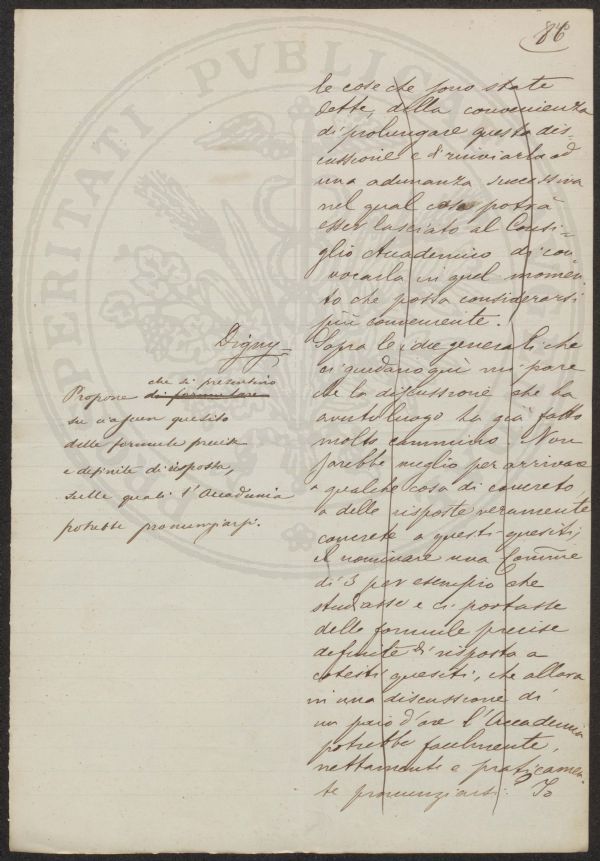 86
le cose che sono state
dette, della convenienza
di prolungare questa dis-
cussione e di rinviarla ad
una adunanza successiva
nel qual caso potrà
esser lasciato al Consi-
glio Accademico di con-
vocarla in quel momen-
to che possa considerarsi
più conveniente.
Digny
Sopra le idee generali che
ci guidano qui mi pare
che la discussione che ha
avuto luogo ha già fatto
molto cammino. Non
sarebbe meglio per arrivare
a qualche cosa di concreto
a delle risposte veramente
concrete a questi quesiti,
il nominare una Comme
di 3 per esempio che
studiasse e ci portasse
delle formule precise
definite di risposta a
cotesti quesiti, che allora
in una discussione di
un paio d'ore l'Accademia
potrebbe facilmente,
nettamente e praticamen-
te pronunziarsi. Io
che si presentino
Propone di formulare
su ciascun quesito
delle formule precise
e definite di risposta,
sulle quali l'Accademia
potrebbe pronunziarsi.
PROSPERITATI PVBLICAE